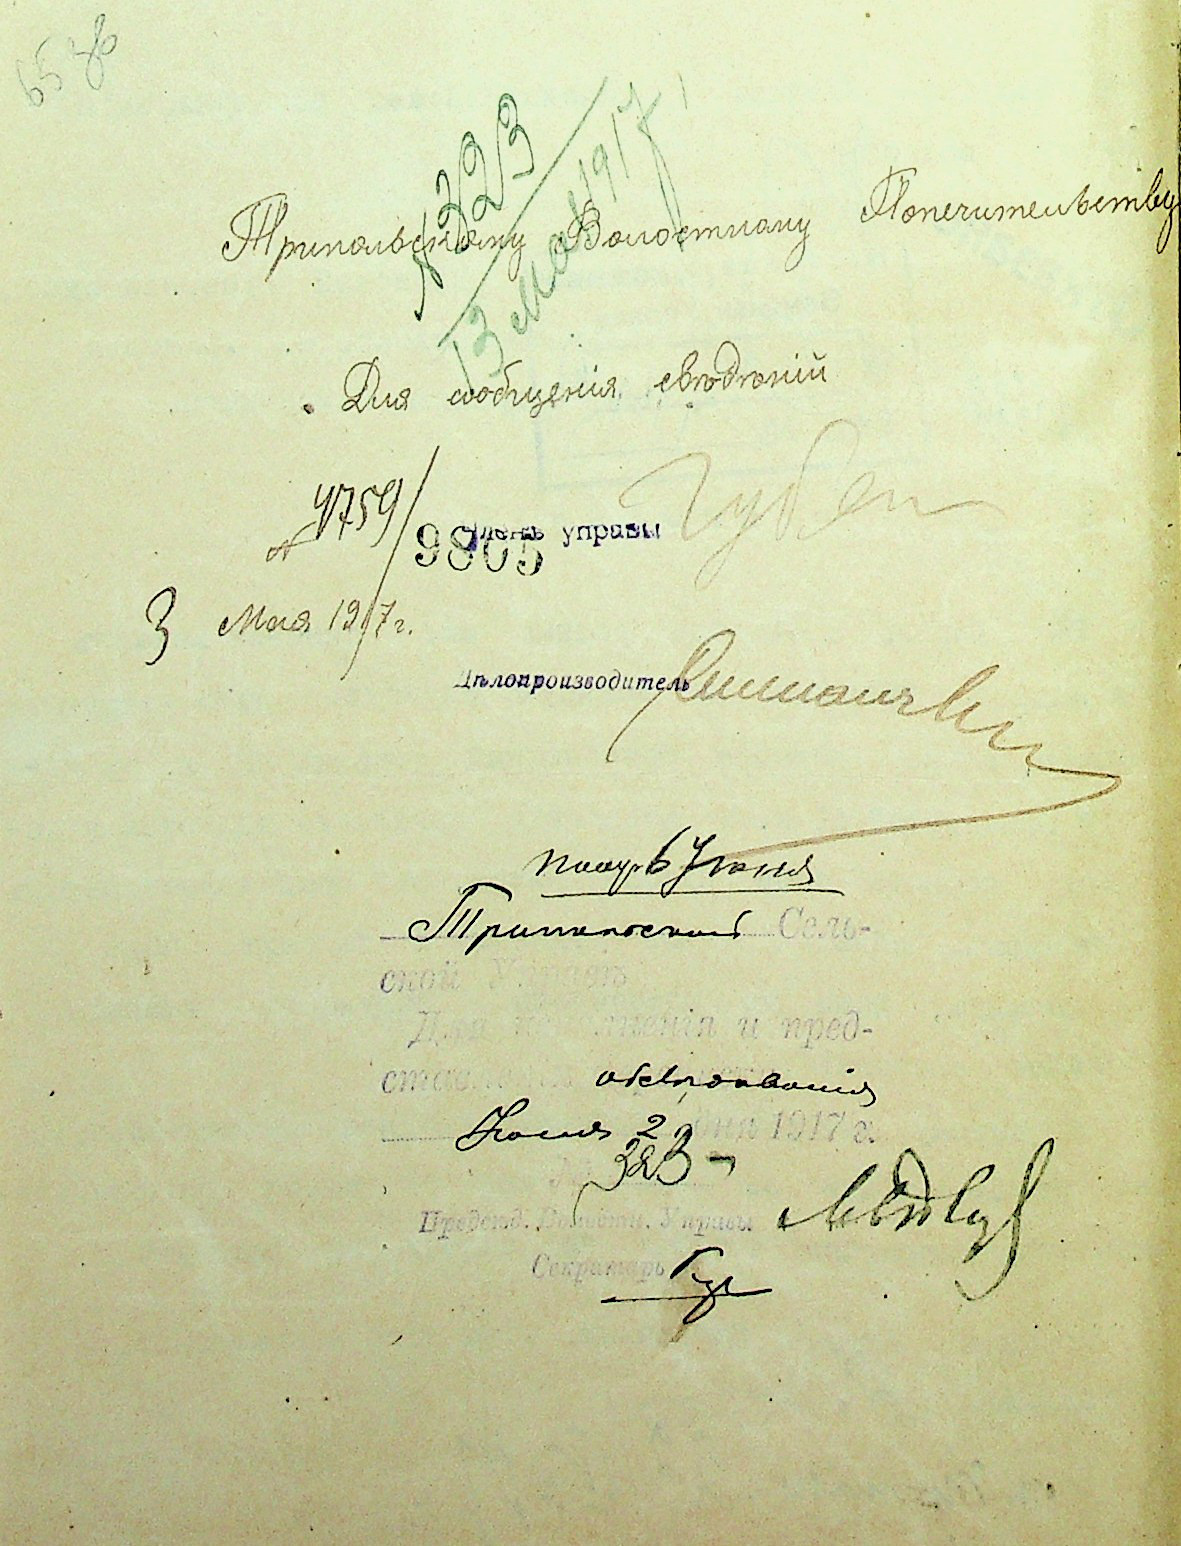 65 зв
№ 323
13 мая 1917
Трипольскому Волостному Попечительству
Для сообщенія свѣдѣній
№ 4759/
9805
Членъ управы
3 Мая 1917 г.
Дѣлопроизводитель
6 Юня
Трипольской Сель-
ской Управѣ
Для исполненія и пред-
ставленія обслѣдованія
Юня 2 дня 1917 г.
323
Предсѣд. Волостн. Управы
Секретарь